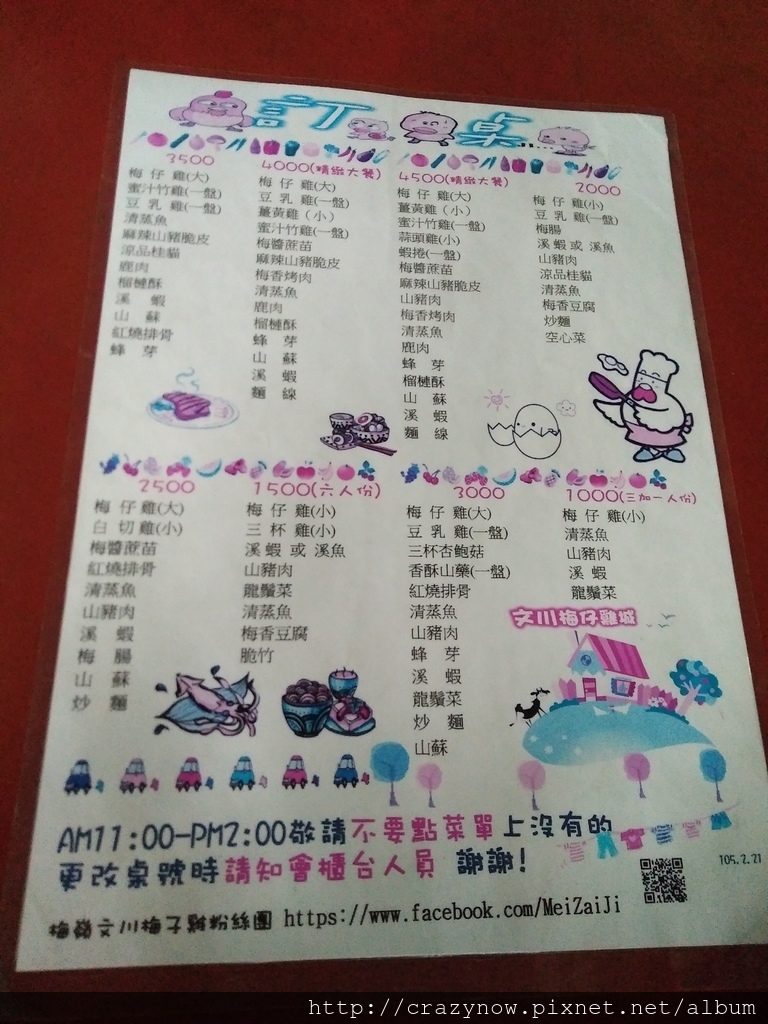 訂桌
3500
梅仔雞(大)
蜜汁竹雞(一盤)
豆乳雞(一盤)
清蒸魚
麻辣山豬脆皮
涼品桂貓
鹿肉
榴槤酥
溪蝦
山蘇
紅燒排骨
蜂芽
4000(精緻大餐)
梅仔雞(大)
豆乳雞(一盤)
薑黃雞(小)
蜜汁竹雞(一盤)
梅醬蔗苗
麻辣山豬脆皮
梅香烤肉
清蒸魚
鹿肉
榴槤酥
蜂芽
山蘇
溪蝦
麵線
4500(精緻大餐)
梅仔雞(大)
薑黃雞(小)
蜜汁竹雞(一盤)
蒜頭雞(小)
蝦捲(一盤)
梅醬蔗苗
麻辣山豬脆皮
山豬肉
梅香烤肉
清蒸魚
鹿肉
蜂芽
榴槤酥
山蘇
溪蝦
麵線
2000
梅仔雞(小)
豆乳雞(一盤)
梅腸
溪蝦或溪魚
山豬肉
涼品桂貓
清蒸魚
梅香豆腐
炒麵
空心菜
2500
梅仔雞(大)
白切雞(小)
梅醬蔗苗
紅燒排骨
清蒸魚
山豬肉
溪蝦
梅腸
山蘇
炒麵
1500(六人份)
梅仔雞(小)
三杯雞(小)
溪蝦或溪魚
山豬肉
龍鬚菜
清蒸魚
梅香豆腐
脆竹
3000
梅仔雞(大)
豆乳雞(一盤)
三杯杏鮑菇
香酥山藥(一盤)
紅燒排骨
清蒸魚
山豬肉
蜂芽
溪蝦
龍鬚菜
炒麵
山蘇
1000(三加一人份)
梅仔雞(小)
清蒸魚
山豬肉
溪蝦
龍鬚菜
文川梅仔雞城
AM11:00-PM2:00敬請不要點菜單上沒有的
更改桌號時請知會櫃台人員 謝謝!
105.2.21
梅嶺文川梅子雞粉絲團 https://www.facebook.com/MeiZaiJi
http://crazynow.pixnet.net/album